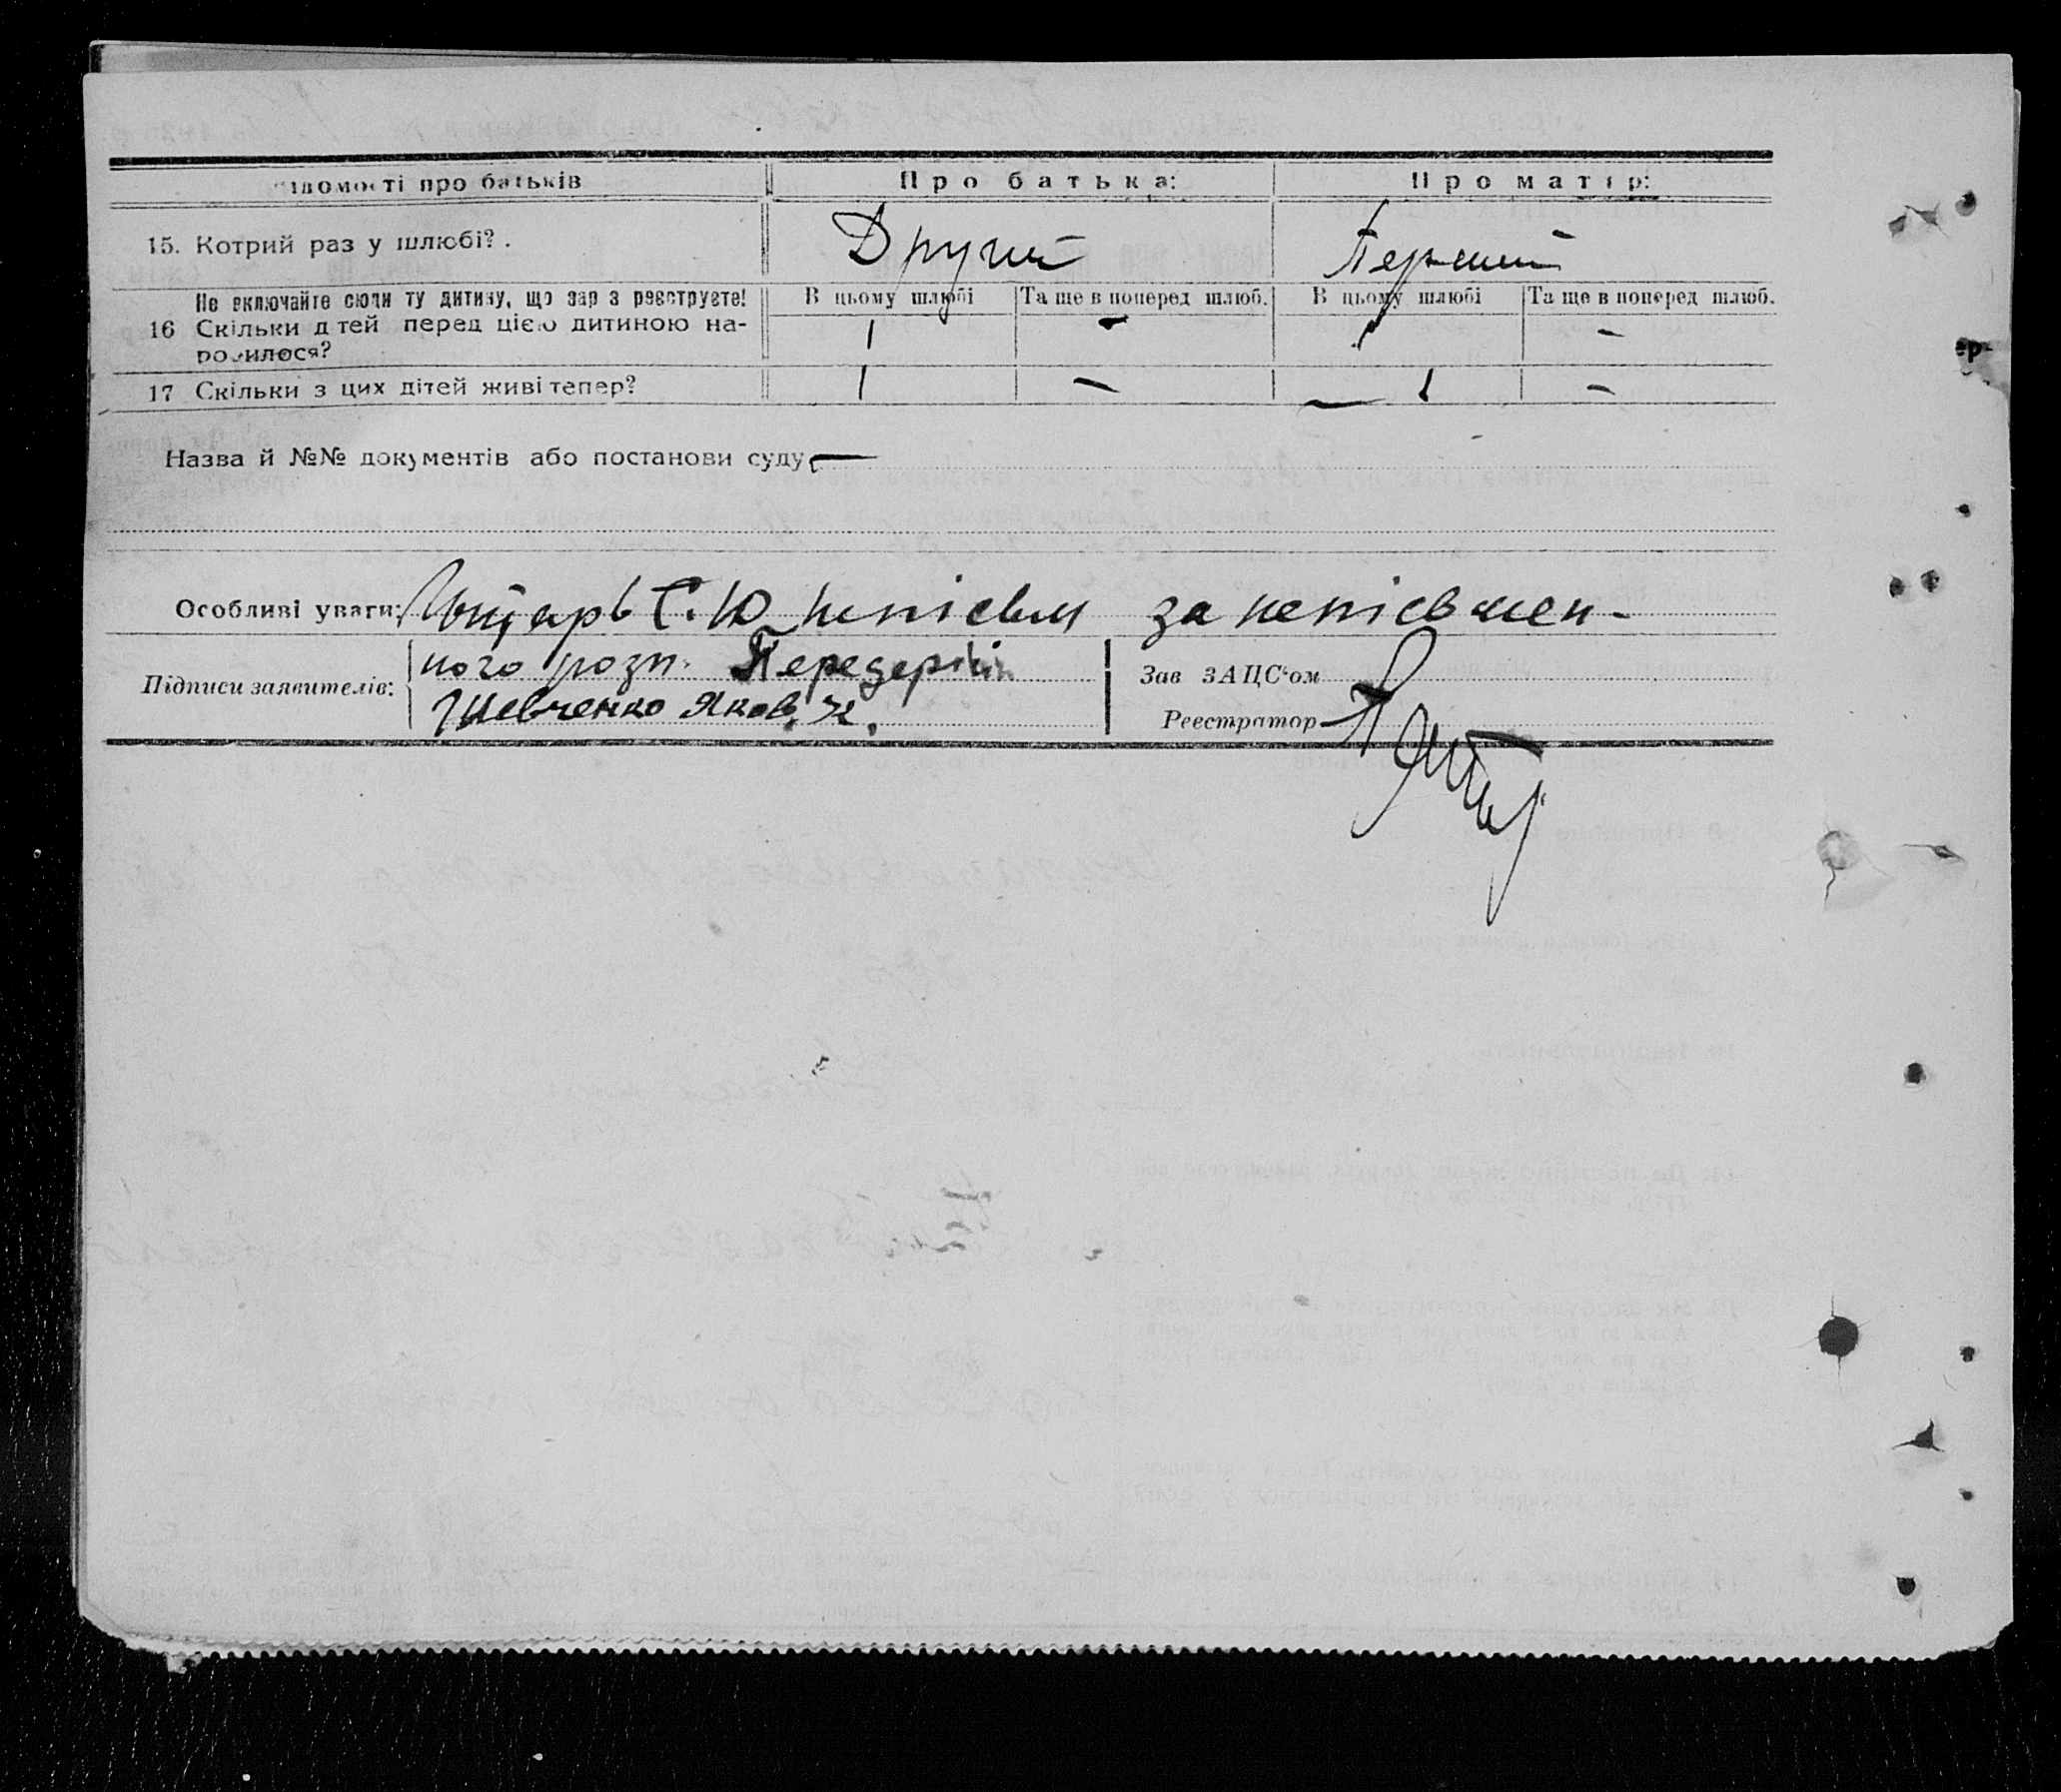 ідомості про батьків Про батька: Про матір:
15. Котрий раз у шлюбі? . Другий Перший
Не включайте сюди ту дитину, що зараз реєструєте! В цьому шлюбі Та ще в поперед шлюб. В цьому шлюбі Та ще в поперед шлюб.
16 Скільки дітей перед цією дитиною на- 1 – 1 –
родилося?
17 Скільки з цих дітей живі тепер? 1 – 1 –
Назва й №№ документів або постанови суду —
Особливі уваги: С. Ю. за непісьмен-
ного розп. Передерій
Підписи заявителів: Шевченко Яков
Зав ЗАЦС'ом
Реєстратор